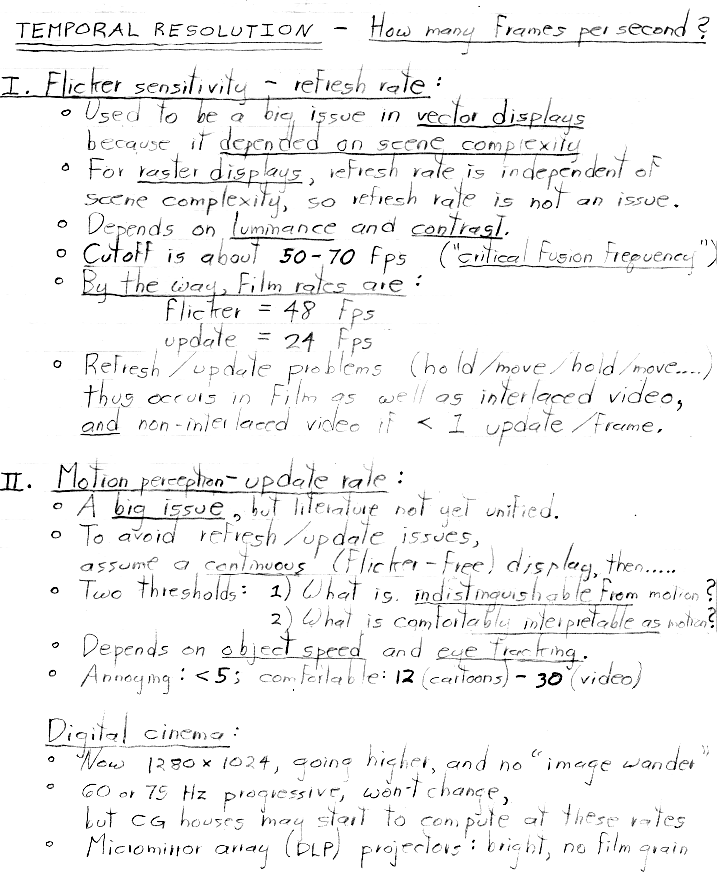 TEMPORAL RESOLUTION - How many frames per second?
I. Flicker sensitivity - refresh rate:
• Used to be a big issue in vector displays
because it depended on scene complexity
• For raster displays, refresh rate is independent of
scene complexity, so refresh rate is not an issue.
• Depends on luminance and contrast.
• Cutoff is about 50-70 fps ("critical fusion frequency")
• By the way, film rates are:
flicker = 48 fps
update = 24 fps
• Refresh/update problems (hold/move/hold/move....)
thus occurs in film as well as interlaced video,
and non-interlaced video if < 1 update/frame.
II. Motion perception - update rate:
• A big issue, but literature not yet unified.
• To avoid refresh/update issues,
assume a continuous (flicker-free) display, then.....
• Two thresholds: 1) What is indistinguishable from motion?
2) What is comfortably interpretable as motion?
• Depends on object speed and eye tracking.
• Annoying: <5; comfortable: 12 (cartoons) - 30 (video)
Digital cinema:
• Now 1280 x 1024, going higher, and no "image wander"
• 60 or 75 Hz progressive, won't change,
but CG houses may start to compute at these rates
• Micromirror array (DLP) projectors: bright, no film grain